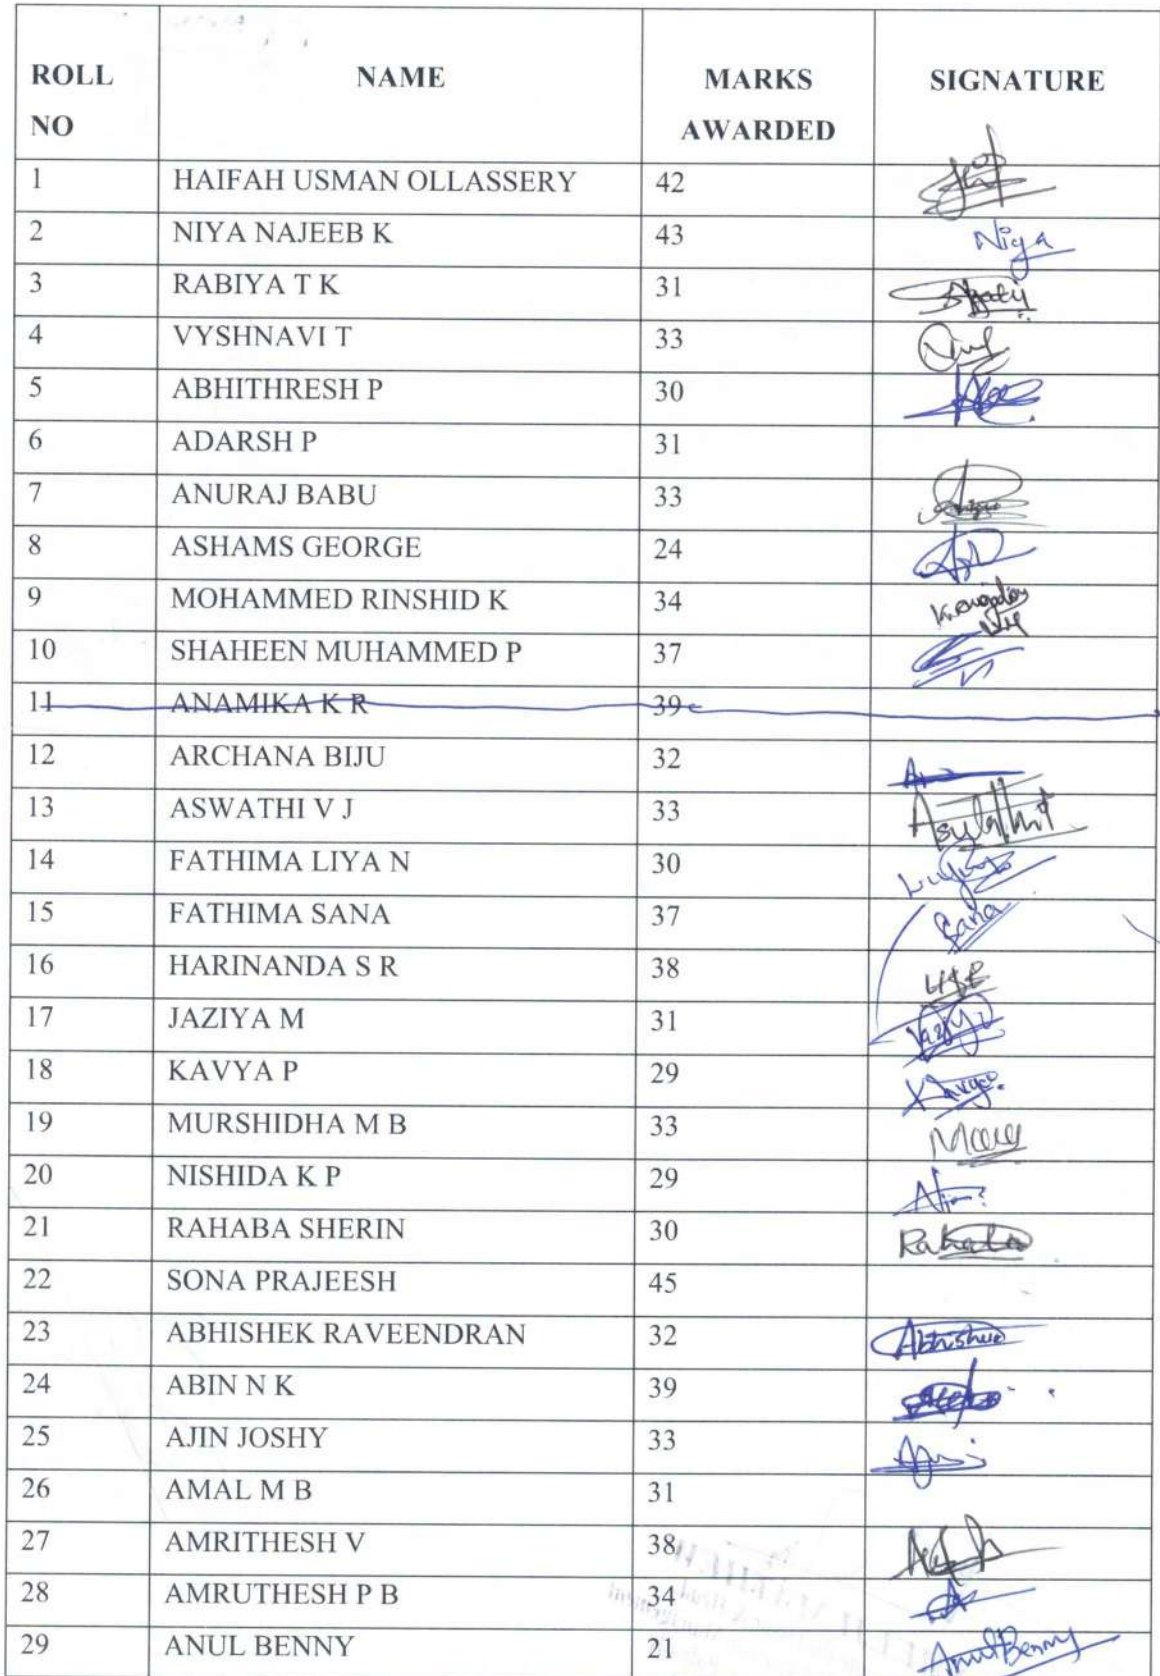 ROLL NO NAME MARKS AWARDED SIGNATURE
1 HAIFAH USMAN OLLASSERY 42
2 NIYA NAJEEB K 43 Niya
3 RABIYA T K 31
4 VYSHNAVI T 33
5 ABHITHRESH P 30
6 ADARSH P 31
7 ANURAJ BABU 33
8 ASHAMS GEORGE 24
9 MOHAMMED RINSHID K 34
10 SHAHEEN MUHAMMED P 37
11 ANAMIKA K R 39
12 ARCHANA BIJU 32
13 ASWATHI V J 33
14 FATHIMA LIYA N 30
15 FATHIMA SANA 37 Sana
16 HARINANDA S R 38
17 JAZIYA M 31
18 KAVYA P 29
19 MURSHIDHA M B 33
20 NISHIDA K P 29
21 RAHABA SHERIN 30
22 SONA PRAJEESH 45
23 ABHISHEK RAVEENDRAN 32
24 ABIN N K 39
25 AJIN JOSHY 33
26 AMAL M B 31
27 AMRITHESH V 38
28 AMRUTHESH P B 34
29 ANUL BENNY 21 Anul Benny